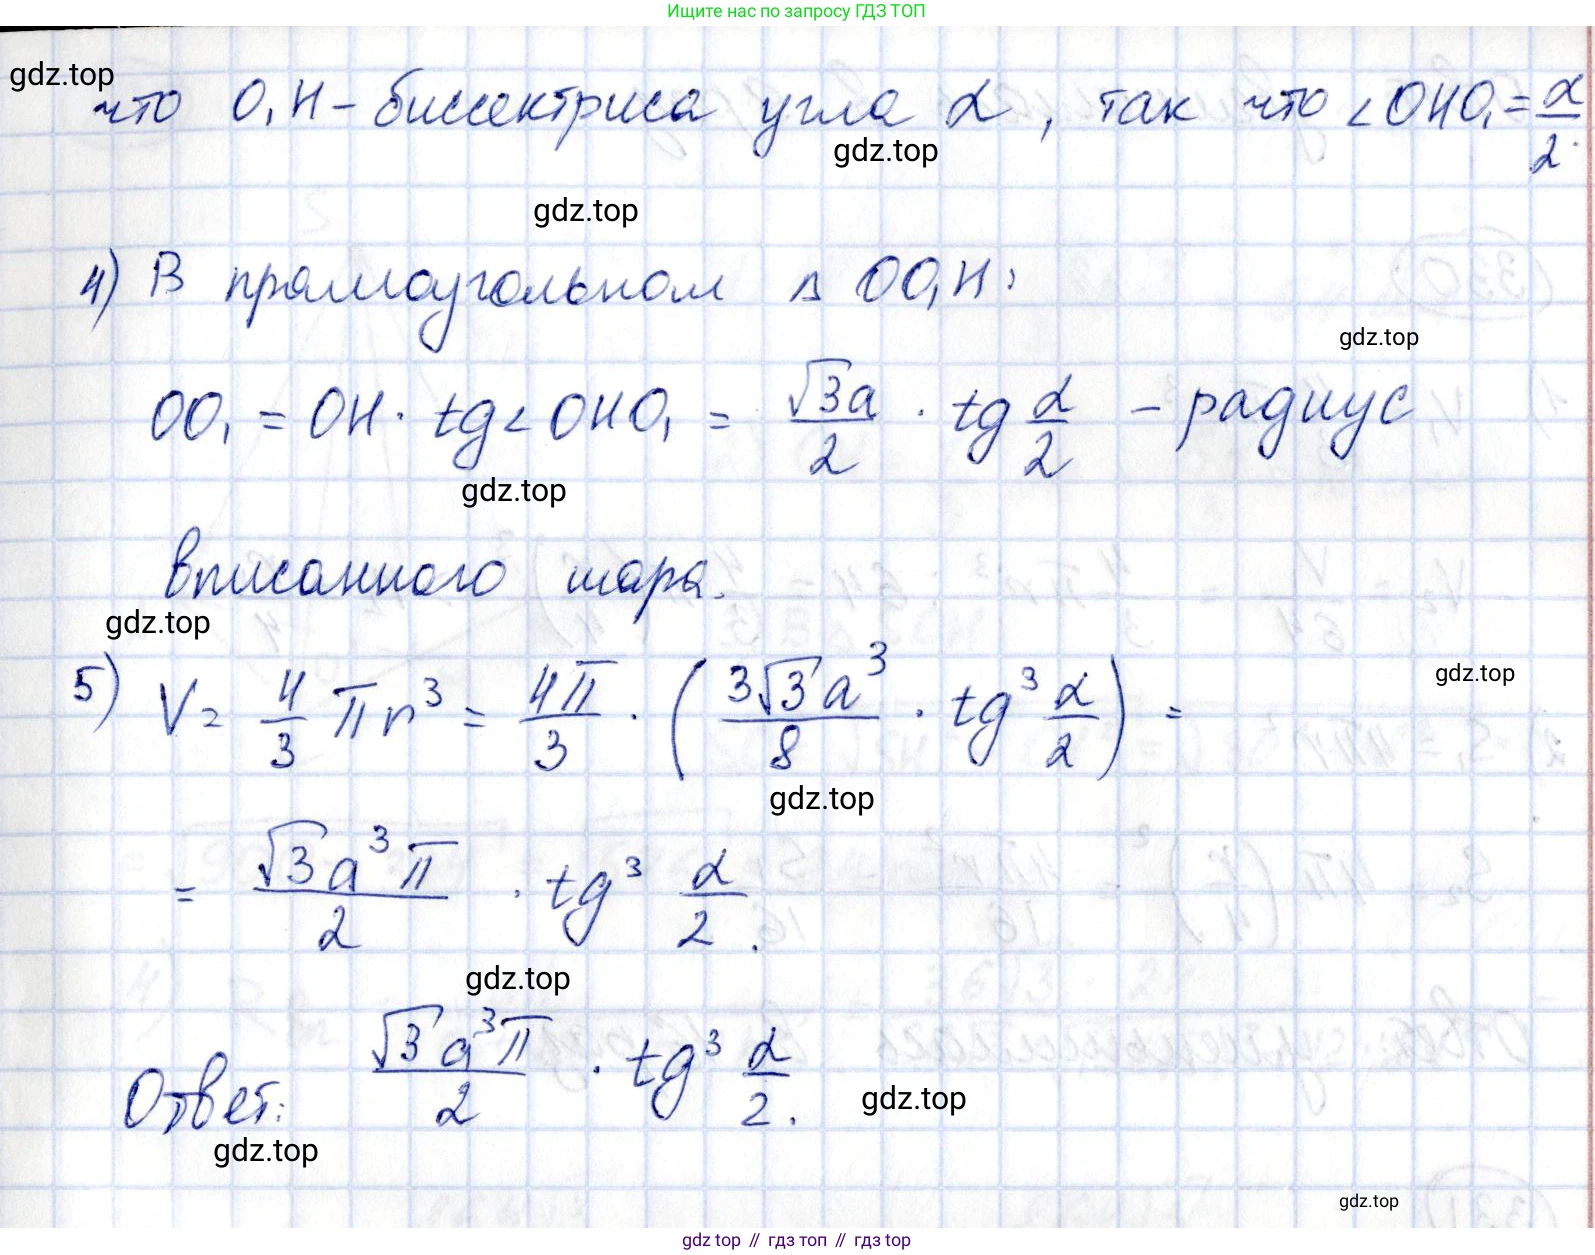 Ищите нас по запросу ГДЗ ТОП
gdz.top
что O₁H - биссектриса угла α, так что ∠OHO₁ = α/2.
gdz.top
gdz.top
4) В прямоугольном △ OO₁H:
gdz.top
OO₁ = OH · tg∠OHO₁ = √3a/2 · tg α/2 - радиус
gdz.top
вписанного шара.
gdz.top
5) V = 4/3 πr³ = 4π/3 · (3√3a³/8 · tg³ α/2) =
gdz.top
gdz.top
= √3a³π/2 · tg³ α/2.
gdz.top
Ответ: √3a³π/2 · tg³ α/2.
gdz.top
gdz.top
gdz.top
gdz top // гдз топ // гдз top